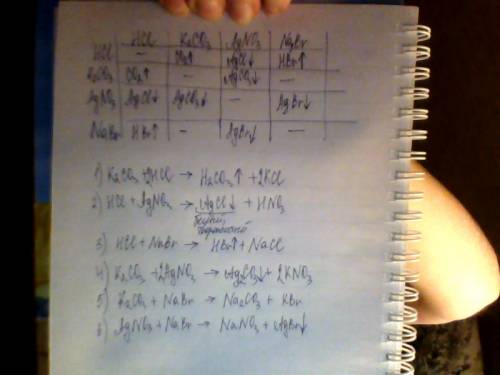 HCl K₂CO₃ AgNO₃ NaBr
HCl CO₂↑ AgCl↓ HBr↑
K₂CO₃ CO₂↑ — AgCO₃↓
AgNO₃ AgCl↓ AgCO₃↓ — AgBr↓
NaBr HBr↑ — AgBr↓ —
1) K₂CO₃ + 2HCl → H₂CO₃↑ + 2KCl
2) HCl + AgNO₃ → AgCl↓ + HNO₃
белый творожистый
3) HCl + NaBr → HBr↑ + NaCl
4) K₂CO₃ + 2AgNO₃ → Ag₂CO₃↓ + 2KNO₃
5) K₂CO₃ + NaBr → Na₂CO₃ + KBr
6) AgNO₃ + NaBr → NaNO₃ + AgBr↓